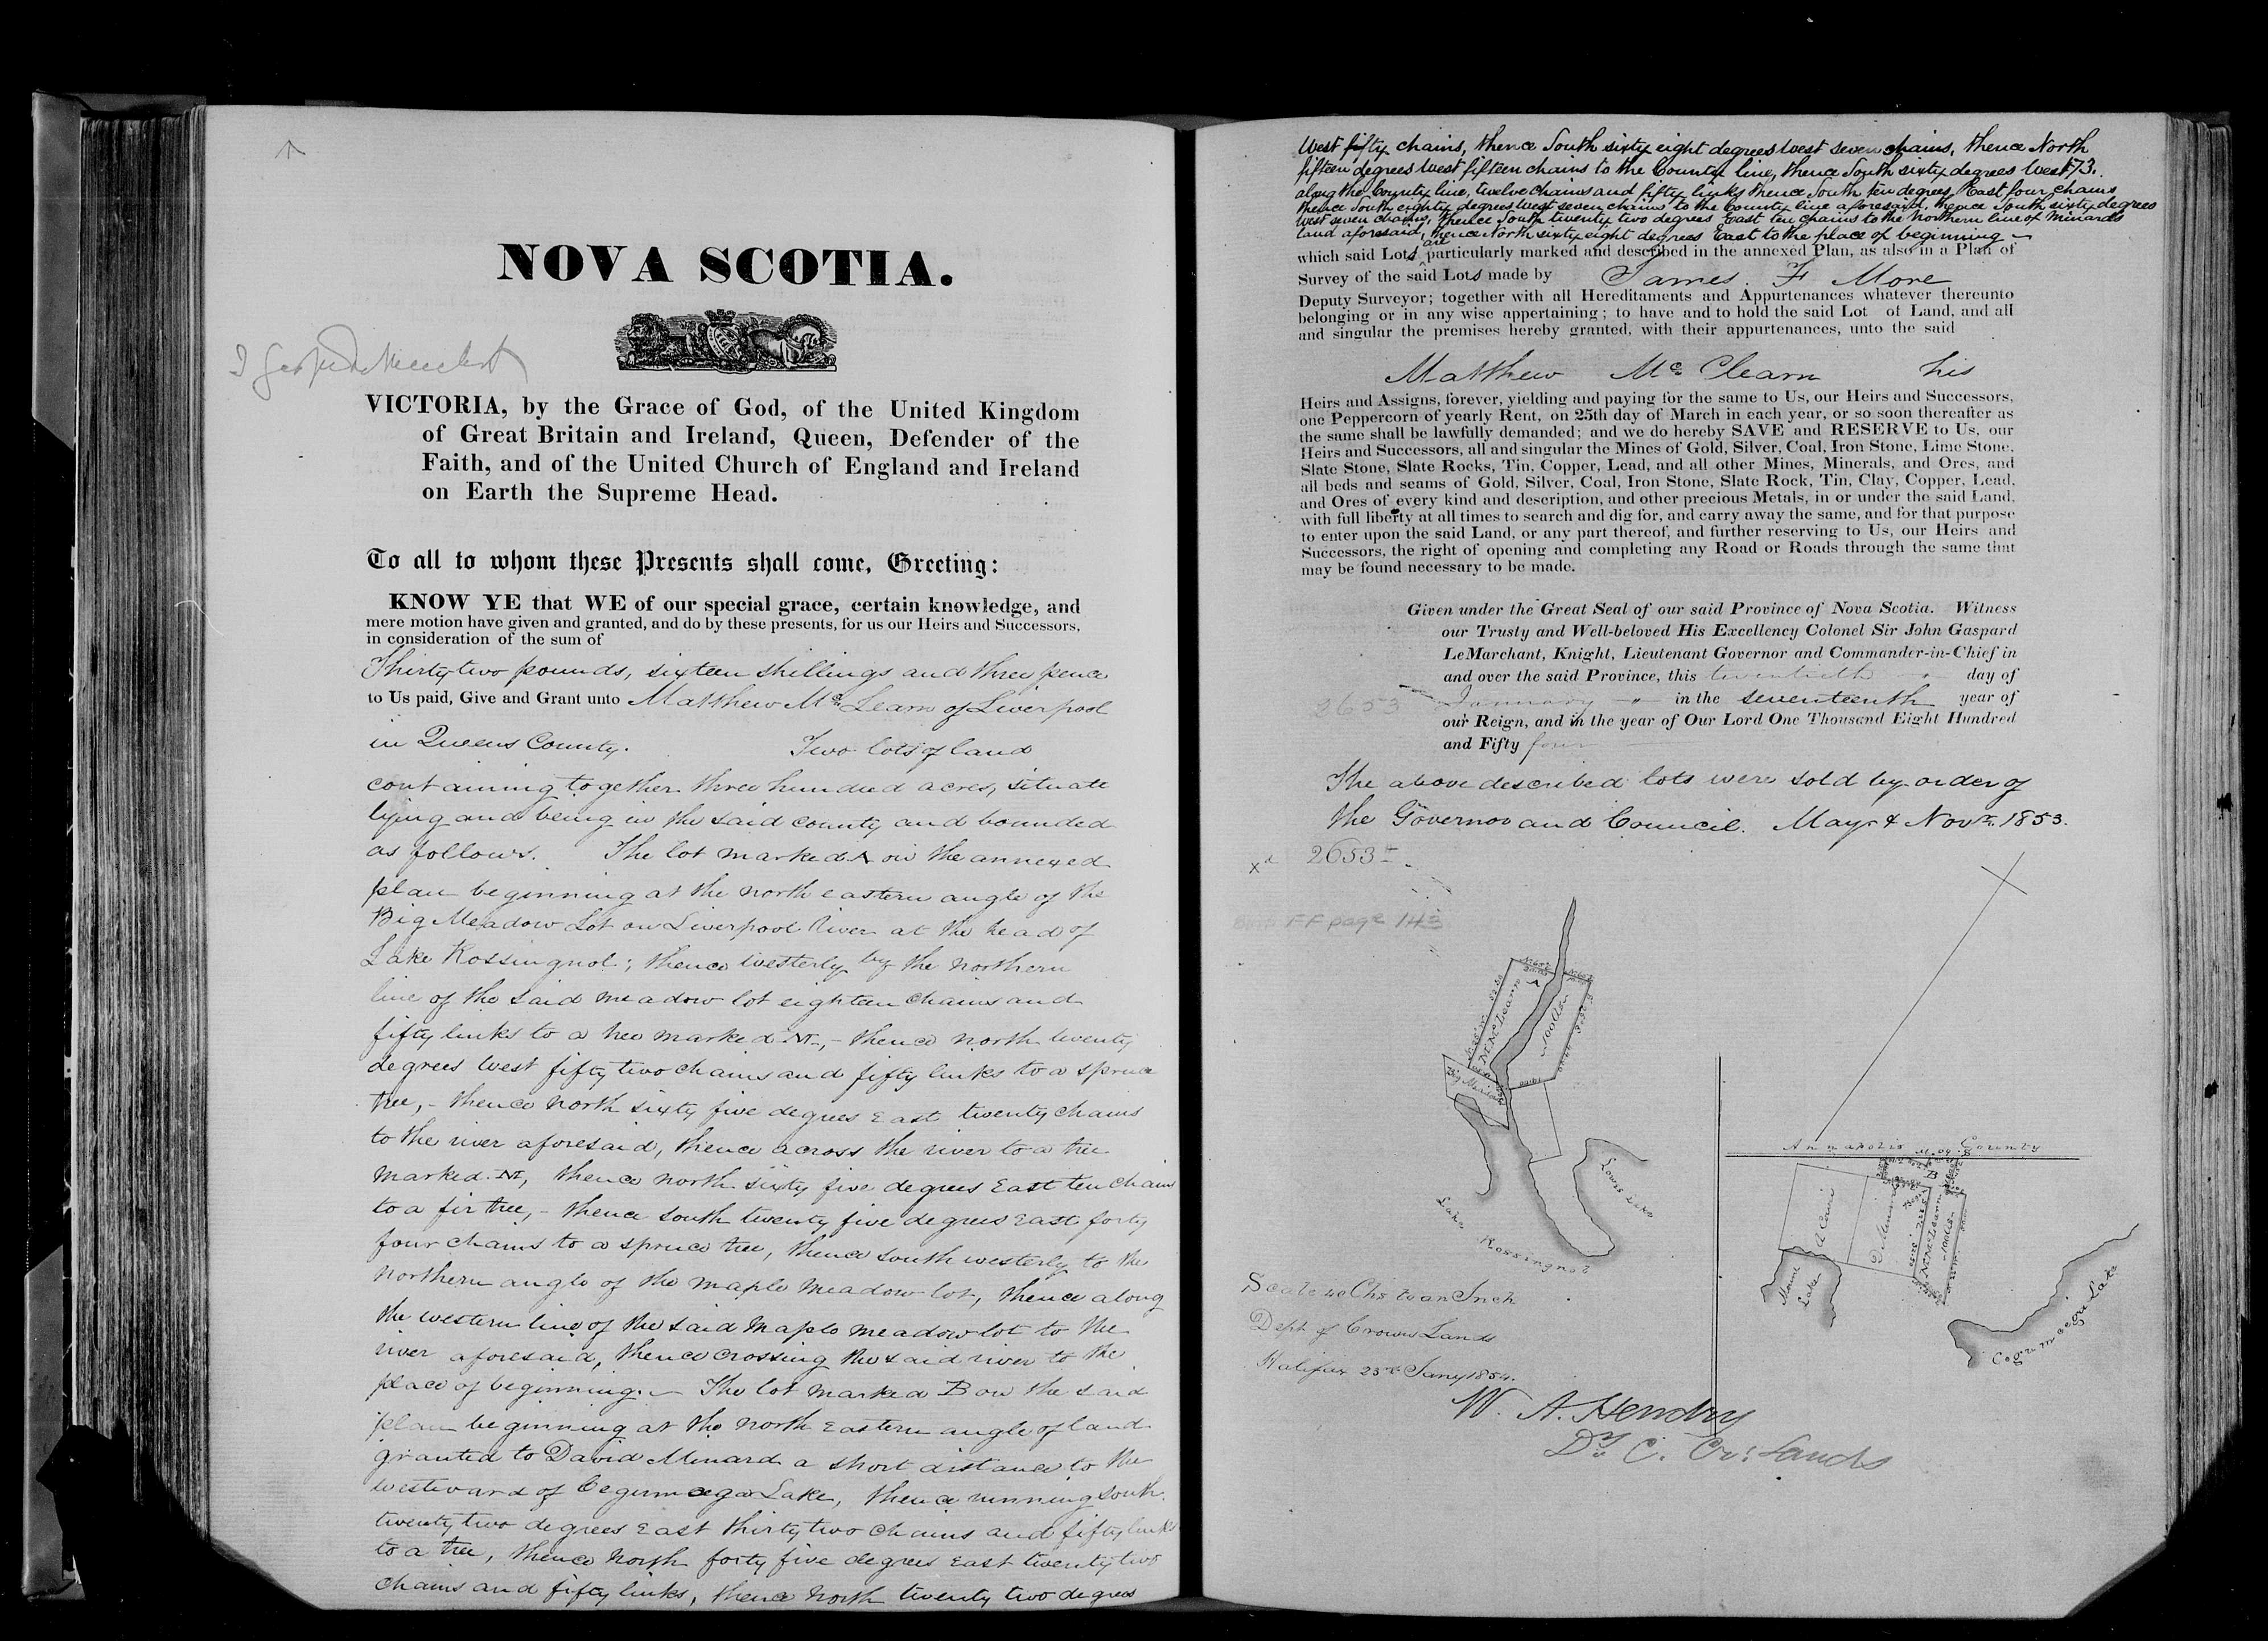 NOVA SCOTIA.
VICTORIA, by the Grace of God, of the United Kingdom
of Great Britain and Ireland, Queen, Defender of the
Faith, and of the United Church of England and Ireland
on Earth the Supreme Head.
To all to whom these Presents shall come, Greeting:
KNOW YE that WE of our special grace, certain knowledge, and
mere motion have given and granted, and do by these presents, for us our Heirs and Successors,
in consideration of the sum of
Thirty two pounds, sixteen shillings and three pence
to Us paid, Give and Grant unto Matthew Mc Learn of Liverpool
in Queens County. Two lots of land
containing together three hundred acres, situate
lying and being in the said county and bounded
as follows. The lot marked A on the annexed
plan beginning at the north eastern angle of the
Big Meadow Lot on Liverpool River at the head of
Lake Rossingnol; thence westerly by the northern
line of the said meadow lot eighteen chains and
fifty links to a tree marked N, - thence north twenty
degrees West fifty two chains and fifty links to a spruce
tree, - thence north sixty five degrees East twenty chains
to the river aforesaid, thence across the river to a tree
marked N, thence north sixty five degrees East ten chains
to a fir tree, - thence south twenty five degrees East forty
four chains to a spruce tree, thence south westerly to the
northern angle of the maple meadow lot, thence along
the western line of the said maple meadow lot to the
river aforesaid, thence crossing the said river to the
place of beginning. — The lot marked B on the said
plan beginning at the north eastern angle of land
granted to David Minard a short distance to the
westward of Cegumcega Lake, thence running south
twenty two degrees East thirty two chains and fifty links
to a tree, thence North forty five degrees East twenty two
chains and fifty links, thence North twenty two degrees
West fifty chains, thence South sixty eight degrees West seven chains, thence North
fifteen degrees West fifteen chains to the County line, thence South sixty degrees West 73.
along the County line, twelve chains and fifty links thence South ten degrees East four chains
thence South eighty degrees West seven chains to the County line aforesaid, thence South sixty degrees
West seven chains, thence South twenty two degrees East ten chains to the Northern line of Minards
land aforesaid, thence North sixty eight degrees East to the place of beginning —
which said Lots are particularly marked and described in the annexed Plan, as also in a Plan of
Survey of the said Lots made by James. F More
Deputy Surveyor; together with all Hereditaments and Appurtenances whatever thereunto
belonging or in any wise appertaining; to have and to hold the said Lot of Land, and all
and singular the premises hereby granted, with their appurtenances, unto the said
Matthew Mc Clearn his
Heirs and Assigns, forever, yielding and paying for the same to Us, our Heirs and Successors,
one Peppercorn of yearly Rent, on 25th day of March in each year, or so soon thereafter as
the same shall be lawfully demanded; and we do hereby SAVE and RESERVE to Us, our
Heirs and Successors, all and singular the Mines of Gold, Silver, Coal, Iron Stone, Lime Stone,
Slate Stone, Slate Rocks, Tin, Copper, Lead, and all other Mines, Minerals, and Ores, and
all beds and seams of Gold, Silver, Coal, Iron Stone, Slate Rock, Tin, Clay, Copper, Lead,
and Ores of every kind and description, and other precious Metals, in or under the said Land,
with full liberty at all times to search and dig for, and carry away the same, and for that purpose
to enter upon the said Land, or any part thereof, and further reserving to Us, our Heirs and
Successors, the right of opening and completing any Road or Roads through the same that
may be found necessary to be made.
Given under the Great Seal of our said Province of Nova Scotia. Witness
our Trusty and Well-beloved His Excellency Colonel Sir John Gaspard
LeMarchant, Knight, Lieutenant Governor and Commander-in-Chief in
and over the said Province, this twentieth day of
2653 January in the seventeenth year of
our Reign, and in the year of Our Lord One Thousand Eight Hundred
and Fifty four
The above described lots were sold by order of
the Governor and Council. May & Novr. 1853.
2653
FF page 143
M McLearn
Big Meadow
Lake Rossingnol
Lows Lake
Annapolis County
B
A
M McLearn
Mound Lake
Cegumcega Lake
Scale 40 Chs to an Inch
Dept of Crown Lands
Halifax 23rd Jany 1854.
W. A. Hendry
Dy C. Cr. Lands